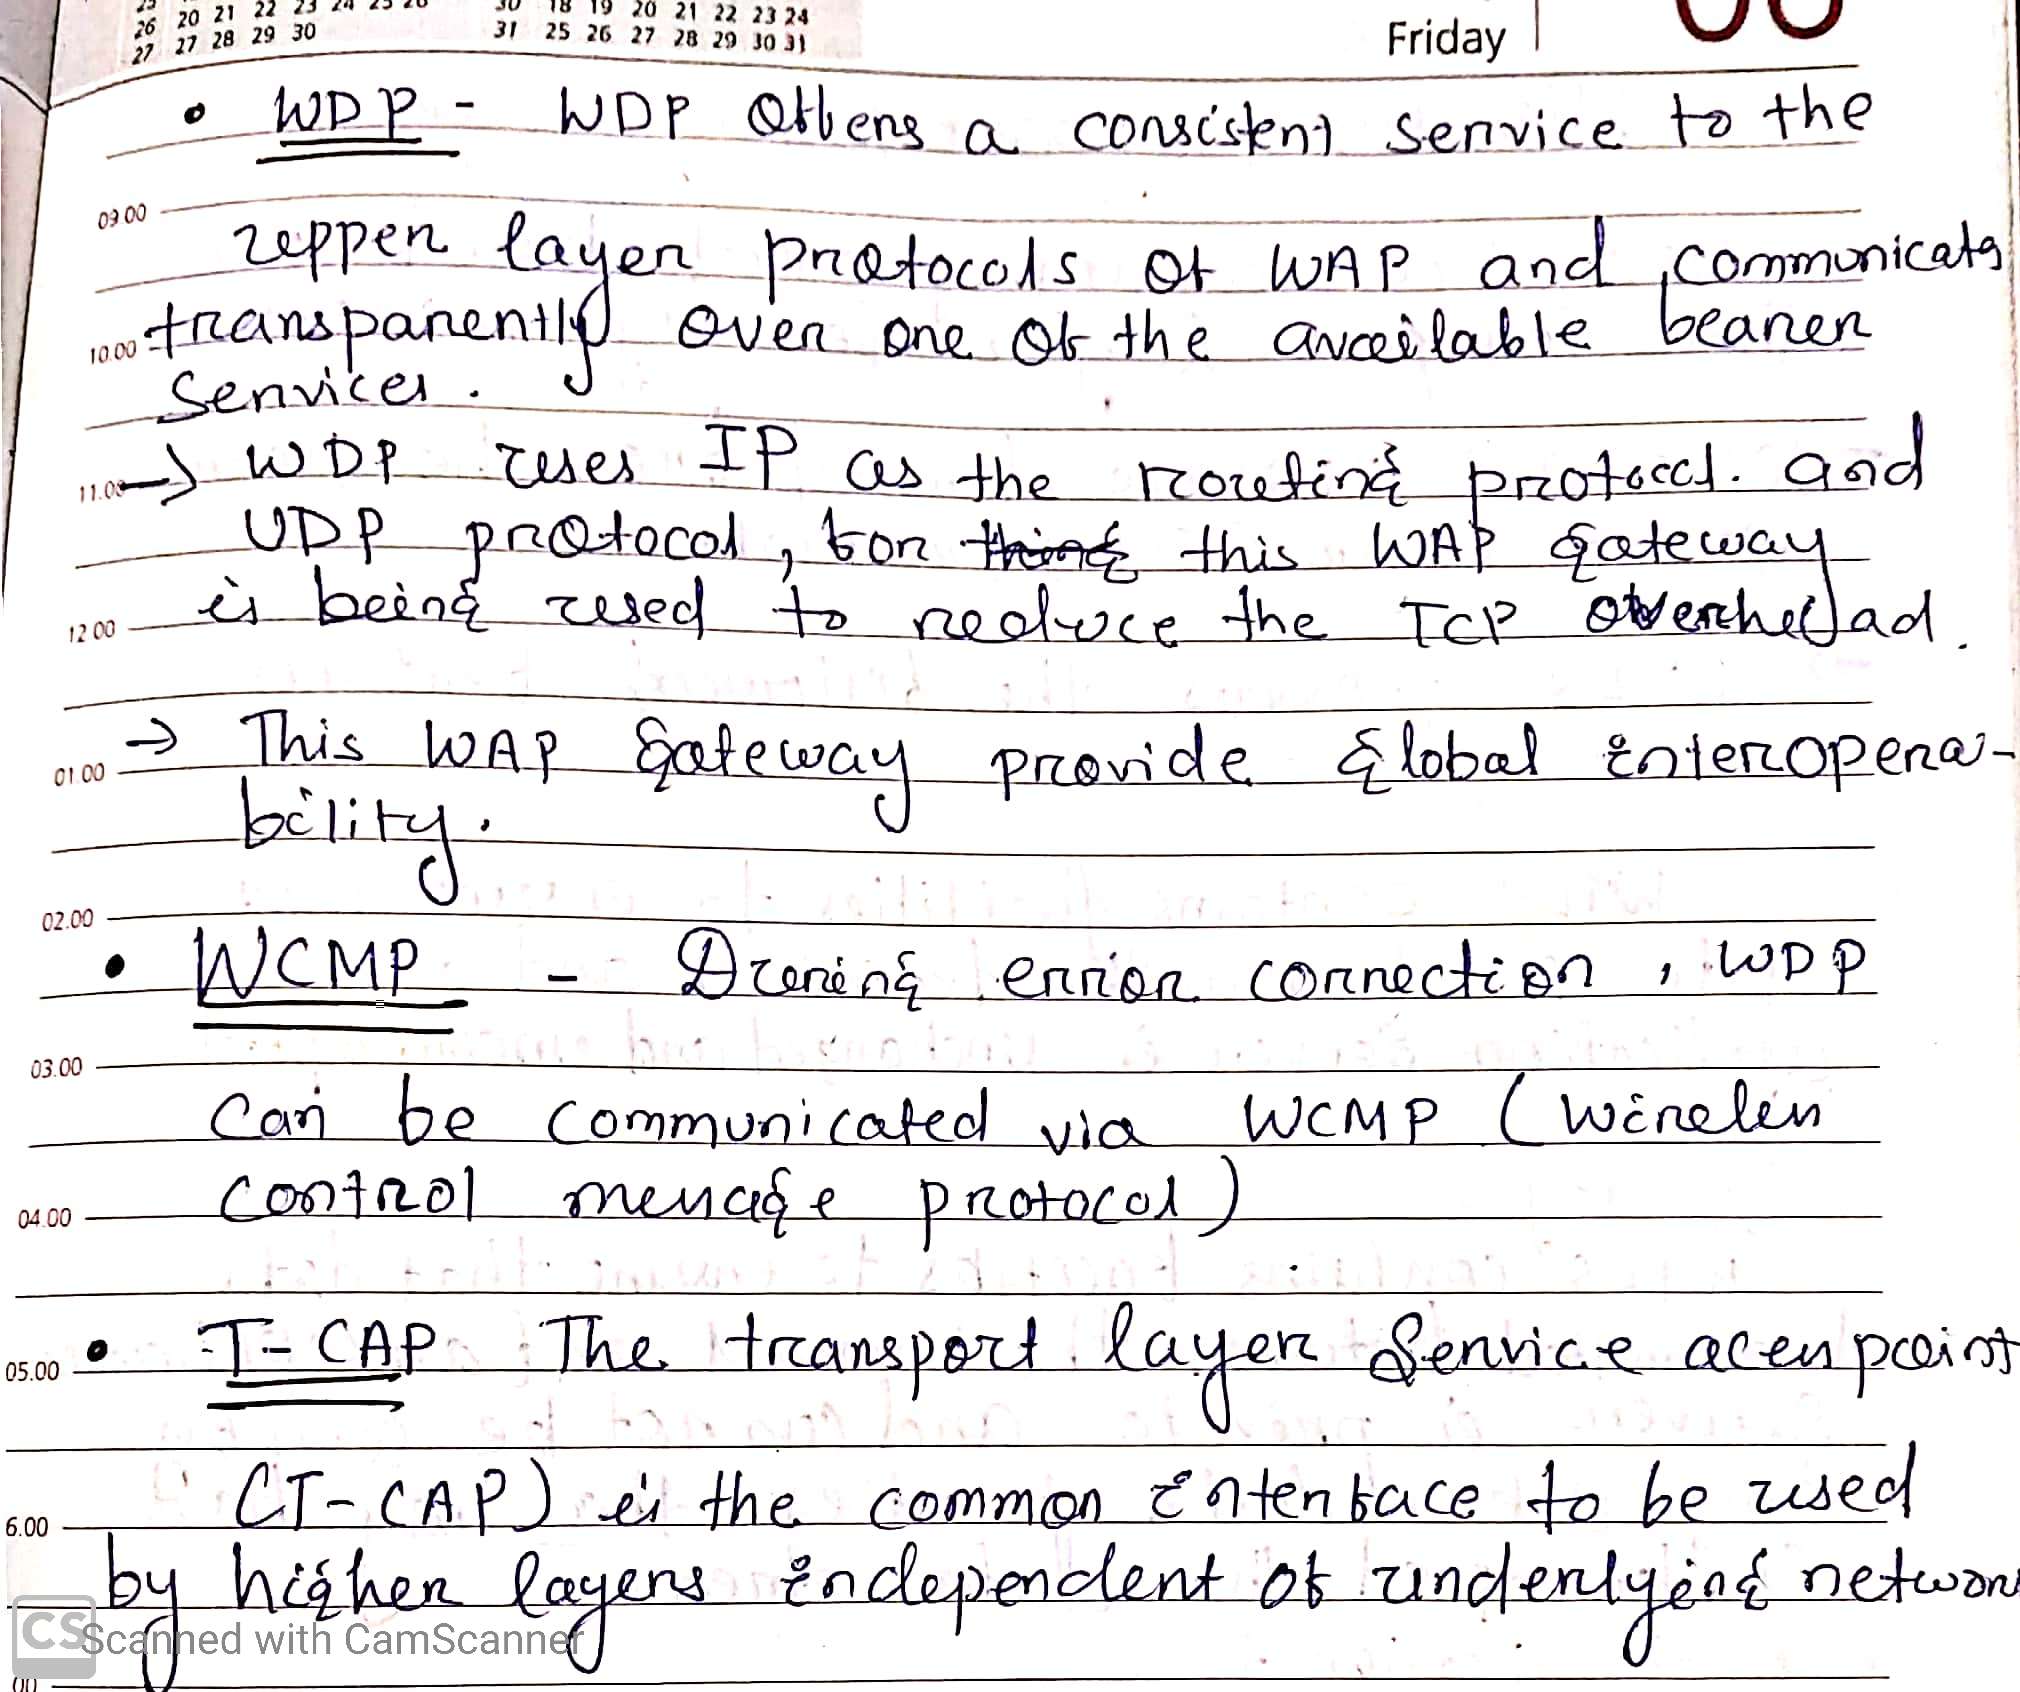 25
26 20 21 22 23 24 25 26
27 27 28 29 30
30 18 19 20 21 22 23 24
31 25 26 27 28 29 30 31
Friday
• WDP - WDP Offers a consistent service to the
09.00
upper layer protocols of WAP and communicate
10.00 transparently over one of the available bearer
services.
11.00 → WDP uses IP as the routing protocol. and
UDP protocol, for this WAP gateway
12.00 is being used to reduce the TCP overhead.
→ This WAP gateway provide global interopera-
01.00
bility.
02.00
• WCMP - During error correction, WDP
03.00
Can be communicated via WCMP (Wireless
control message protocol)
04.00
• T-CAP The transport layer Service access point
05.00
(T-CAP) is the common interface to be used
6.00
by higher layers independent of underlying network
CS Scanned with CamScanner
00